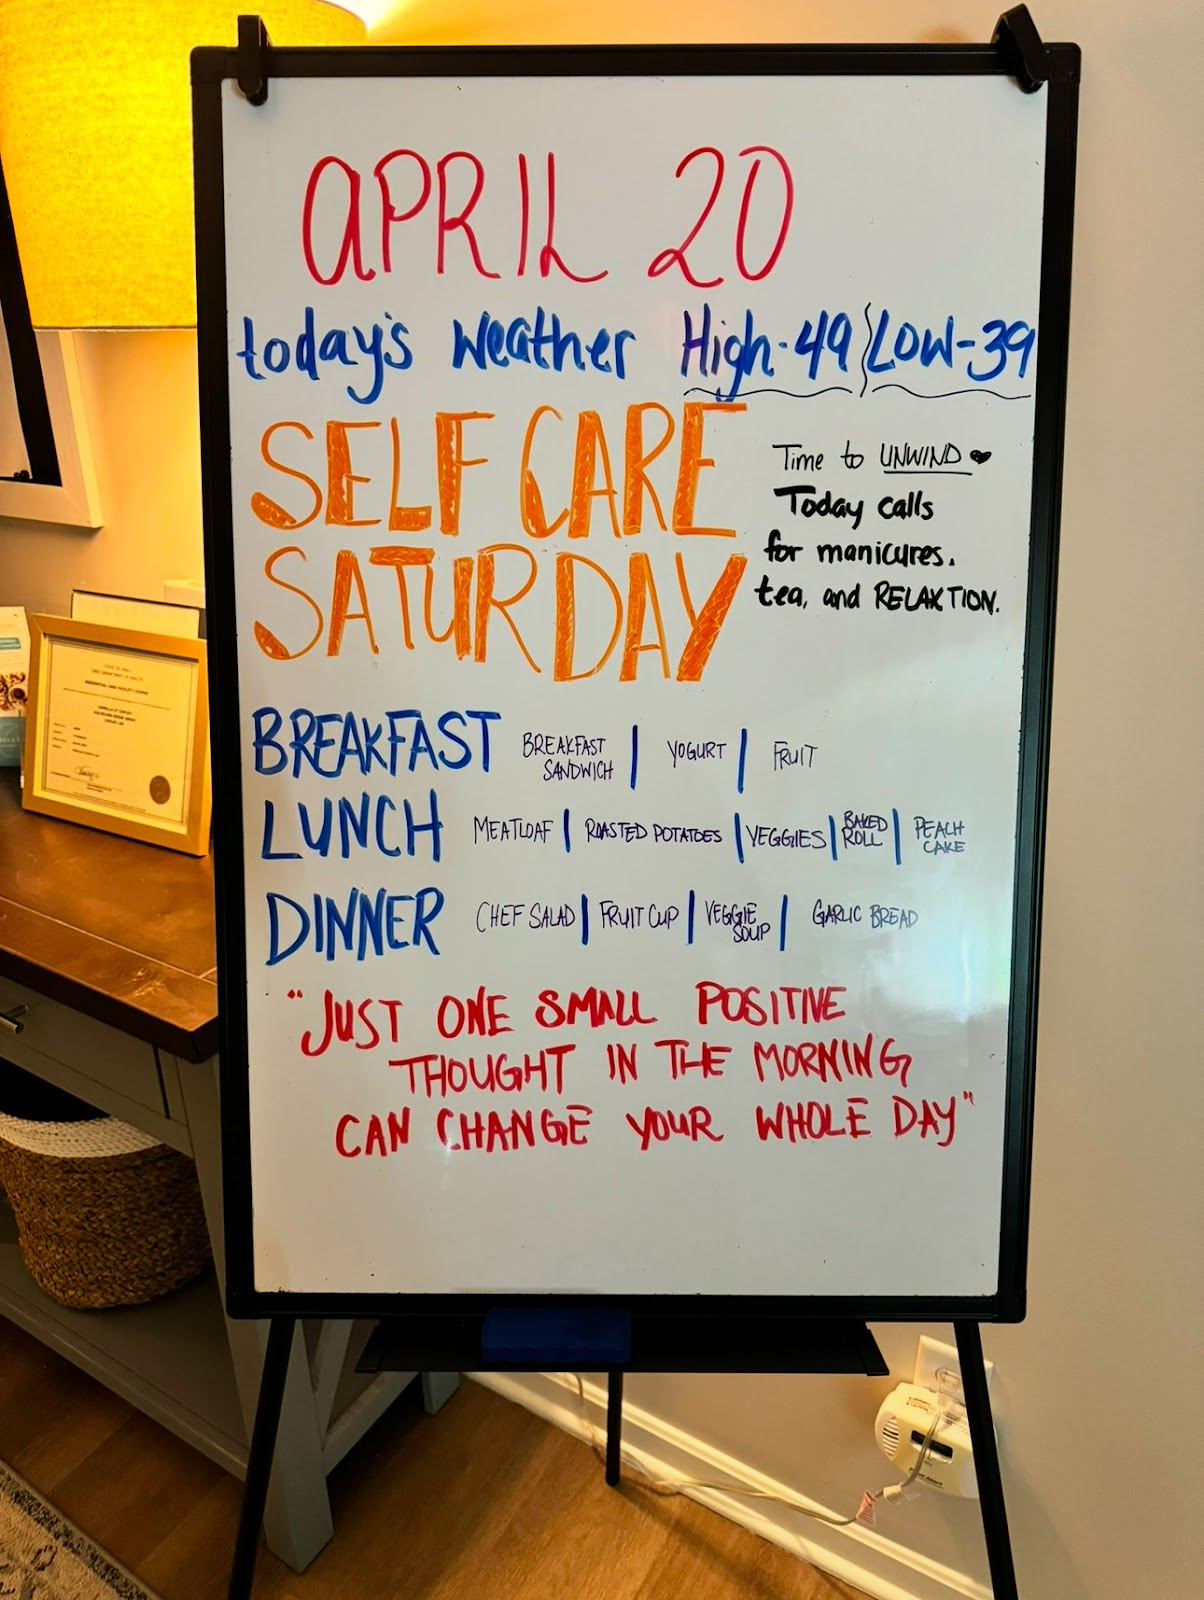 APRIL 20
today's weather High-49 Low-39
SELF CARE
SATURDAY
Time to UNWIND ♥
Today calls
for manicures.
tea, and RELAXTION.
BREAKFAST BREAKFAST SANDWICH | YOGURT | FRUIT
LUNCH MEATLOAF | ROASTED POTATOES | VEGGIES | BAKED ROLL | PEACH CAKE
DINNER CHEF SALAD | FRUIT CUP | VEGGIE SOUP | GARLIC BREAD
"JUST ONE SMALL POSITIVE
THOUGHT IN THE MORNING
CAN CHANGE YOUR WHOLE DAY"
STATE OF OHIO
OHIO DEPARTMENT OF HEALTH
RESIDENTIAL CARE FACILITY LICENSE